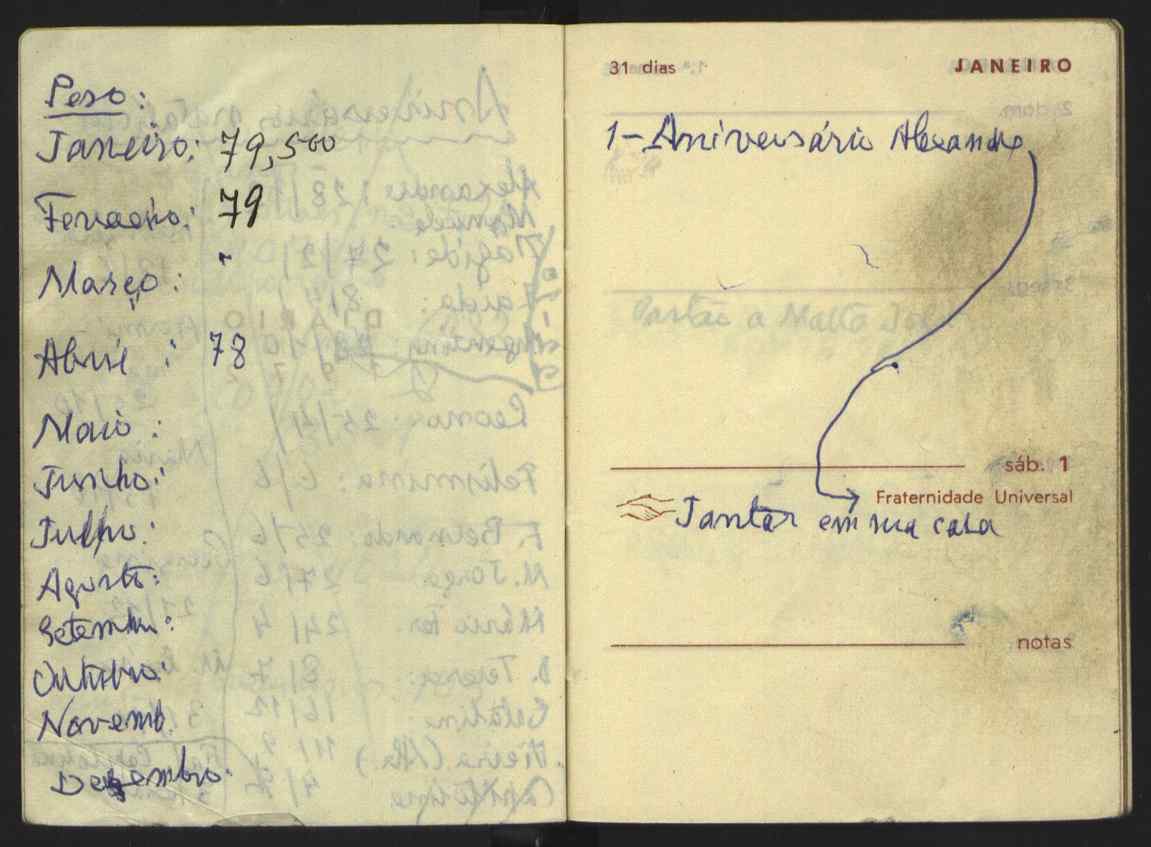 Peso:
Janeiro: 79,500
Fevereiro: 79
Março: "
Abril : 78
Maio :
Junho:
Julho:
Agosto:
Setembro:
Outubro:
Novemb.
Dezembro:
31 dias JANEIRO
1-Aniversário Alexandre
sáb. 1
Fraternidade Universal
Jantar em sua casa
notas